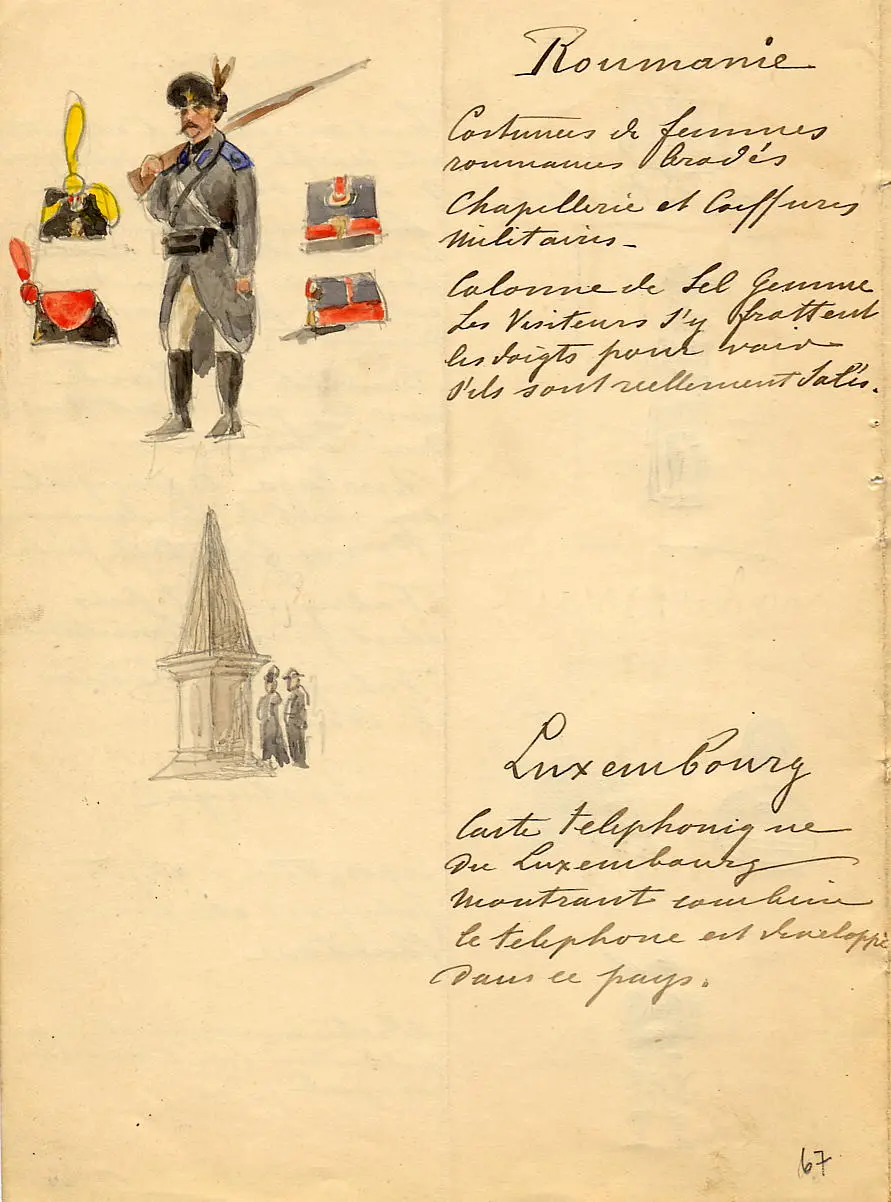 Roumanie
Costumes de femmes
roumaines brodés
Chapellerie et Coiffures
Militaires_
Colonne de Sel Gemme
Les Visiteurs s'y frottent
les doigts pour voir
s'ils sont reellement Salés.
Luxembourg
Carte telephonique
du Luxembourg
Montrant combien
le telephone est developpé
dans ce pays.
67